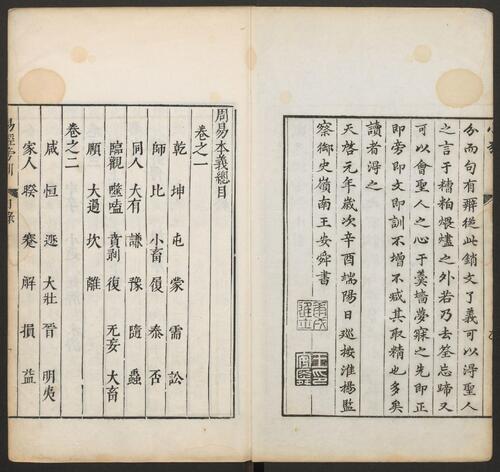 分而句有辯從此銷文了義可以淂聖人
之言于糟粕煨燼之外若乃去筌忘蹄又
可以會聖人之心于羹墻夢寐之先即正
即旁即文即訓不增不减其取精也多矣
讀者淂之
天啓元年歲次辛酉端陽日巡按淮揚監
察御史嶺南王安舜書
周易本義總目
卷之一
乾 坤 屯 蒙 需 訟
師 比 小畜 履 泰 否
同人 大有 謙 豫 隨 蠱
臨觀 噬嗑 賁剥 復 无妄 大畜
頤 大過 坎 離
卷之二
咸 恒 遯 大壯 晉 明夷
家人 睽 蹇 解 損 益